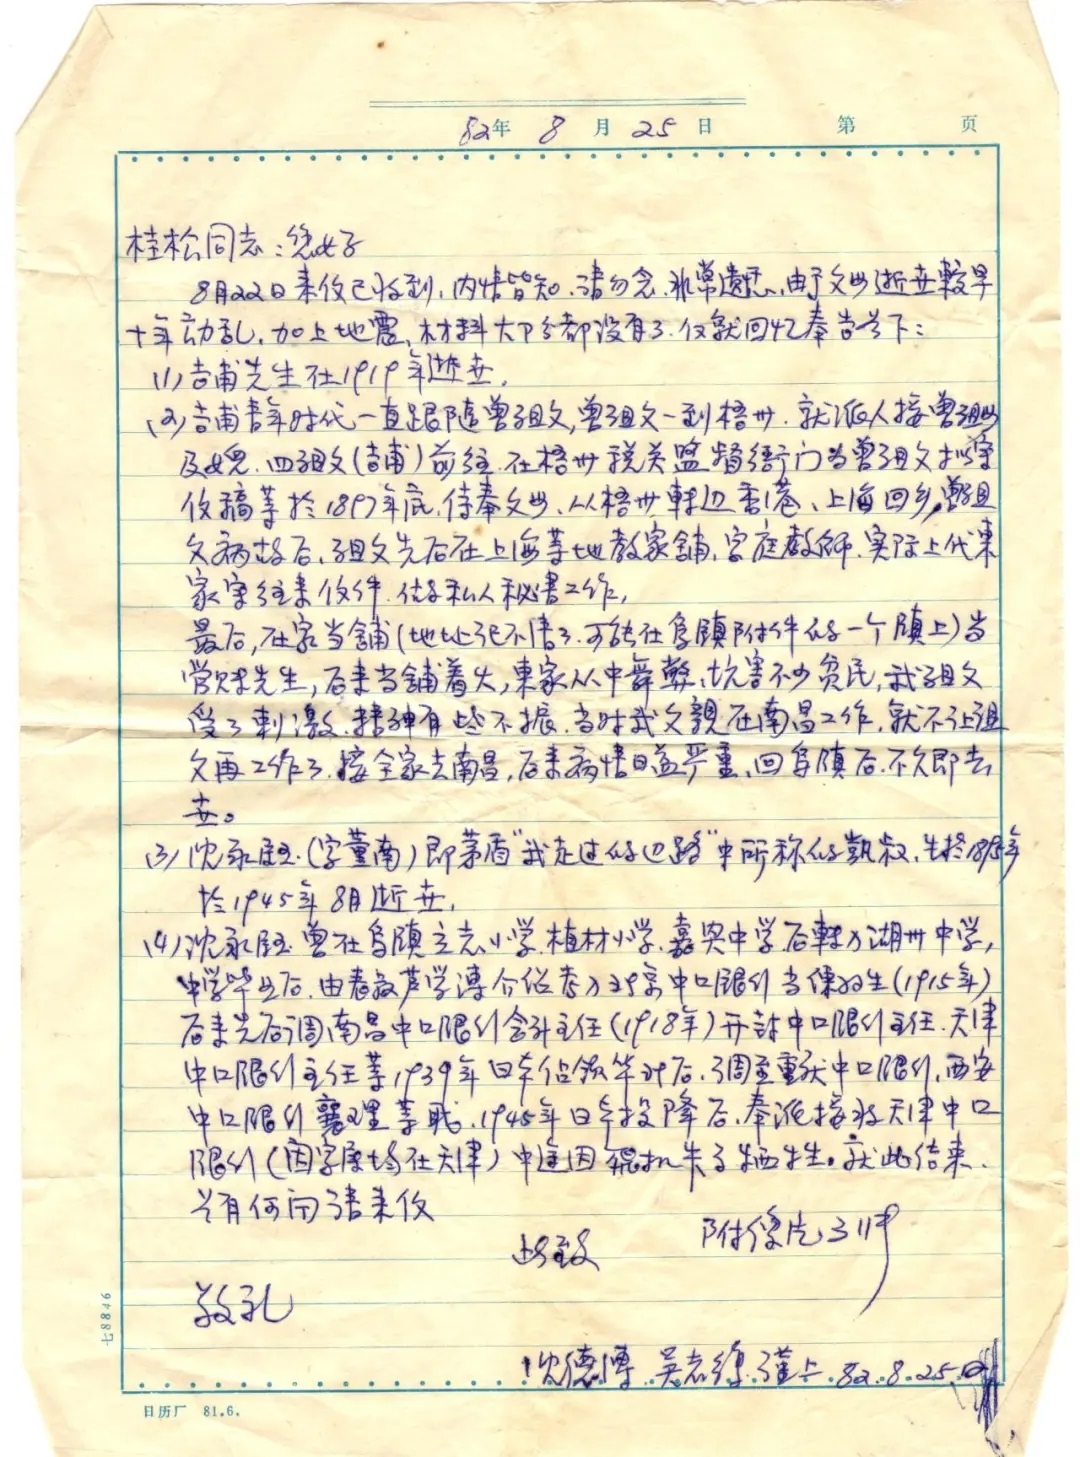 82年 8 月 25 日 第 页
桂松同志：您好
8月22日来信已收到，内情皆知，请勿念，非常遗憾，由于父母逝世较早
十年动乱，加上地震，材料大部分都没有了，仅就回忆奉告如下：
(1) 吉甫先生在1919年逝世，
(2) 吉甫青年时代一直跟随曾祖父，曾祖父一到梧州，就派人接曾祖母
及 四祖父（吉甫）前往，在梧州税关监督衙门为曾祖父抄写
信稿等於1897年底，侍奉父母，从梧州转边香港、上海回乡，曾祖
父病故后，祖父先后在上海等地教家馆，家庭教师，实际上代东
家写往来信件，做私人秘书工作，
最后，在家当铺（地址记不清了，可能在乌镇附件的一个镇上）当
管账先生，后来当铺着火，东家从中舞弊，坑害不少贫民，我祖父
受了刺激，精神有些不振，当时我父亲在南昌工作，就不让祖
父再工作了，接全家去南昌，后来病情日益严重，回乌镇后，不久即去
世。
(3) 沈永 （字董南）即茅盾"我走过的边路"中所称的凯叔，生於 年
於1945年8月逝世，
(4) 沈永 曾在乌镇立志小学，植材小学，嘉兴中学后转为湖州中学，
中学毕业后，由表叔芦学溥介绍考入北京中口限行当练习生（1915年）
后来先后调南昌中口限行会计主任（1918年）开封中口限行主任，天津
中口限行主任等1939年日本占领华北后，调至重庆中口限行，西安
中口限行襄理等职，1945年日本投降后，奉派接收天津中口
限行（因家属均在天津）中途因飞机失事牺牲。就此结束，
若有何问请来信
此致 附像片
敬礼
沈德溥 吴志 谨上 82.8.25.
七8846
日历厂 81.6.